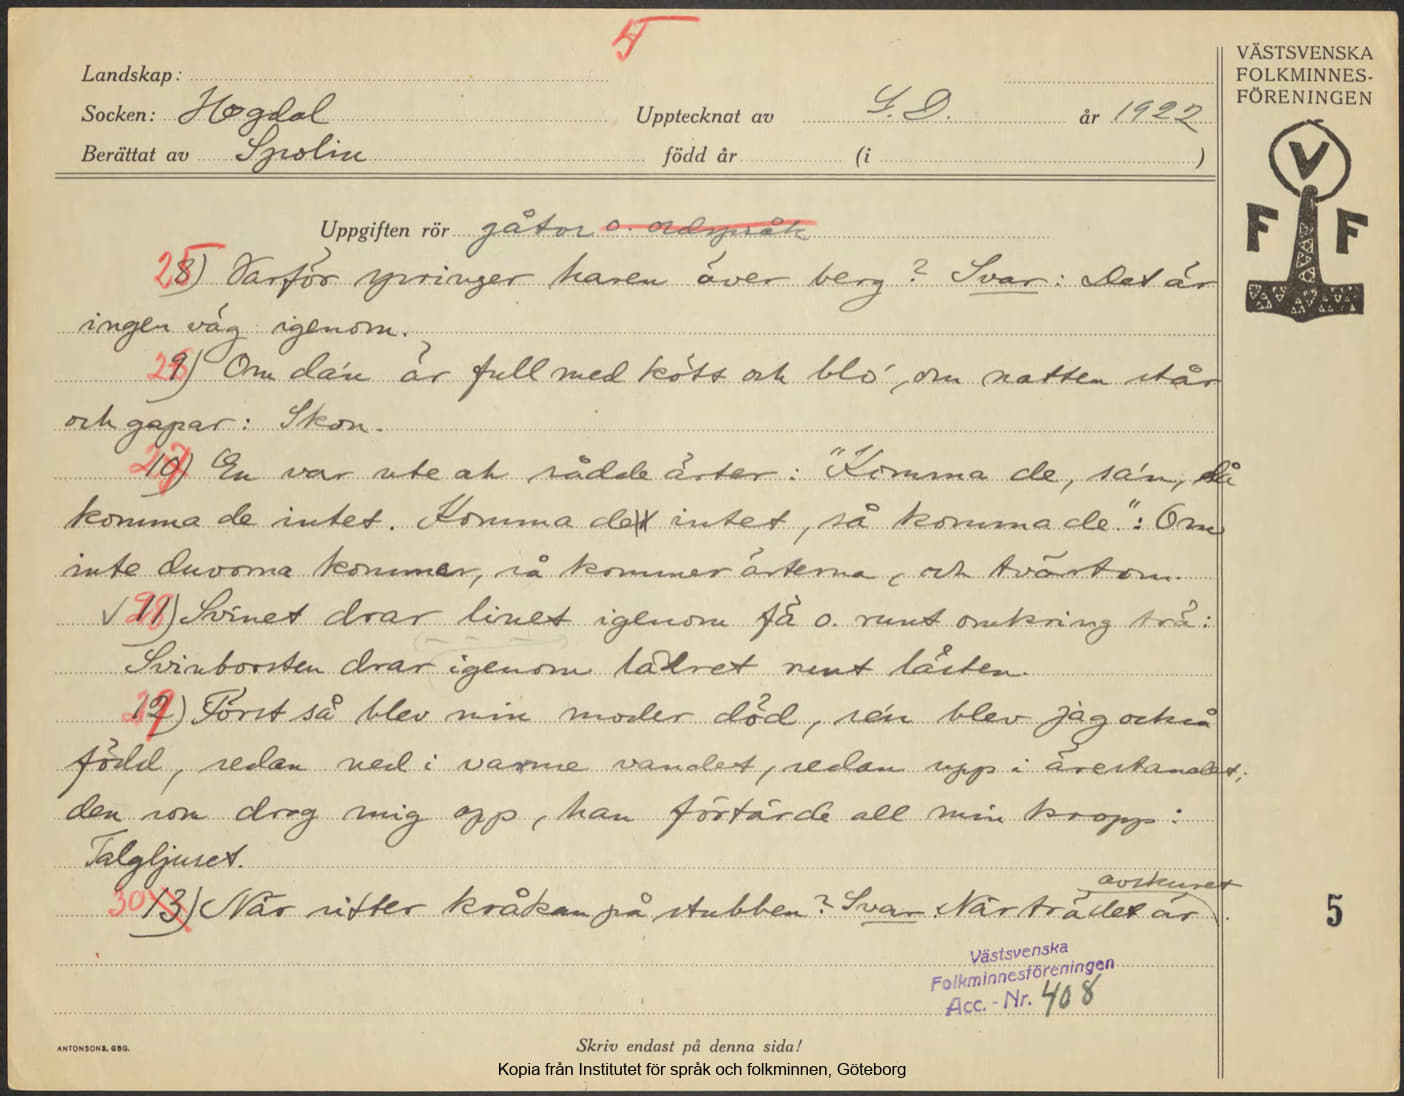 5
VÄSTSVENSKA
FOLKMINNES-
FÖRENINGEN
V
F F
Landskap:
Socken: Hogdal Upptecknat av S. D. år 1922
Berättat av Spolin född år (i )
Uppgiften rör gåtor o. ordspråk
25 8) Varför springer haren över berg? Svar: Det är
ingen väg igenom.
26 9) Om da'n är full med kött och blo', om natten står
och gapar: Skon.
27 10) En var ute ok sådde ärter: "Komma de, sa'n, så
komma de intet. Komma de intet, så komma de.": Om
inte duvorna kommer, så kommer ärterna, och tvärtom.
✓ 28 11) Svinet drar linet igenom fä o. runt omkring trä:
Svinborsten drar igenom lädret runt lästen.
29 12) Först så blev min moder död, se'n blev jag också
född, sedan ned i varme vandet, sedan upp i ärestandet;
den som drog mig opp, han förtärde all min kropp:
Talgljuset.
30 13) När sitter kråkan på stubben? Svar: När trädet är avskuret.
5
Västsvenska
Folkminnesföreningen
Acc.-Nr. 408
ANTONSONS, GBG.
Skriv endast på denna sida!
Kopia från Institutet för språk och folkminnen, Göteborg